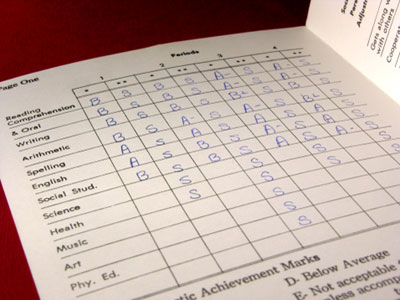 Page One
Periods
1 2 3 4
* ** * ** * ** * **
Reading B S B S A- S A- S
Comprehension B S B S A- S
& Oral B S B S S
Writing B S A S A- S
Arithmetic A S A S A- S
Spelling A S B S A S A- S
English B S B S A S A-
Social Stud. S S S
Science S S S
Health
Music S
Art S
Phy. Ed.
tic Achievement Marks
D- Below Average
E- Not acceptable
unless accomp
Gets along
with others
Cooperat